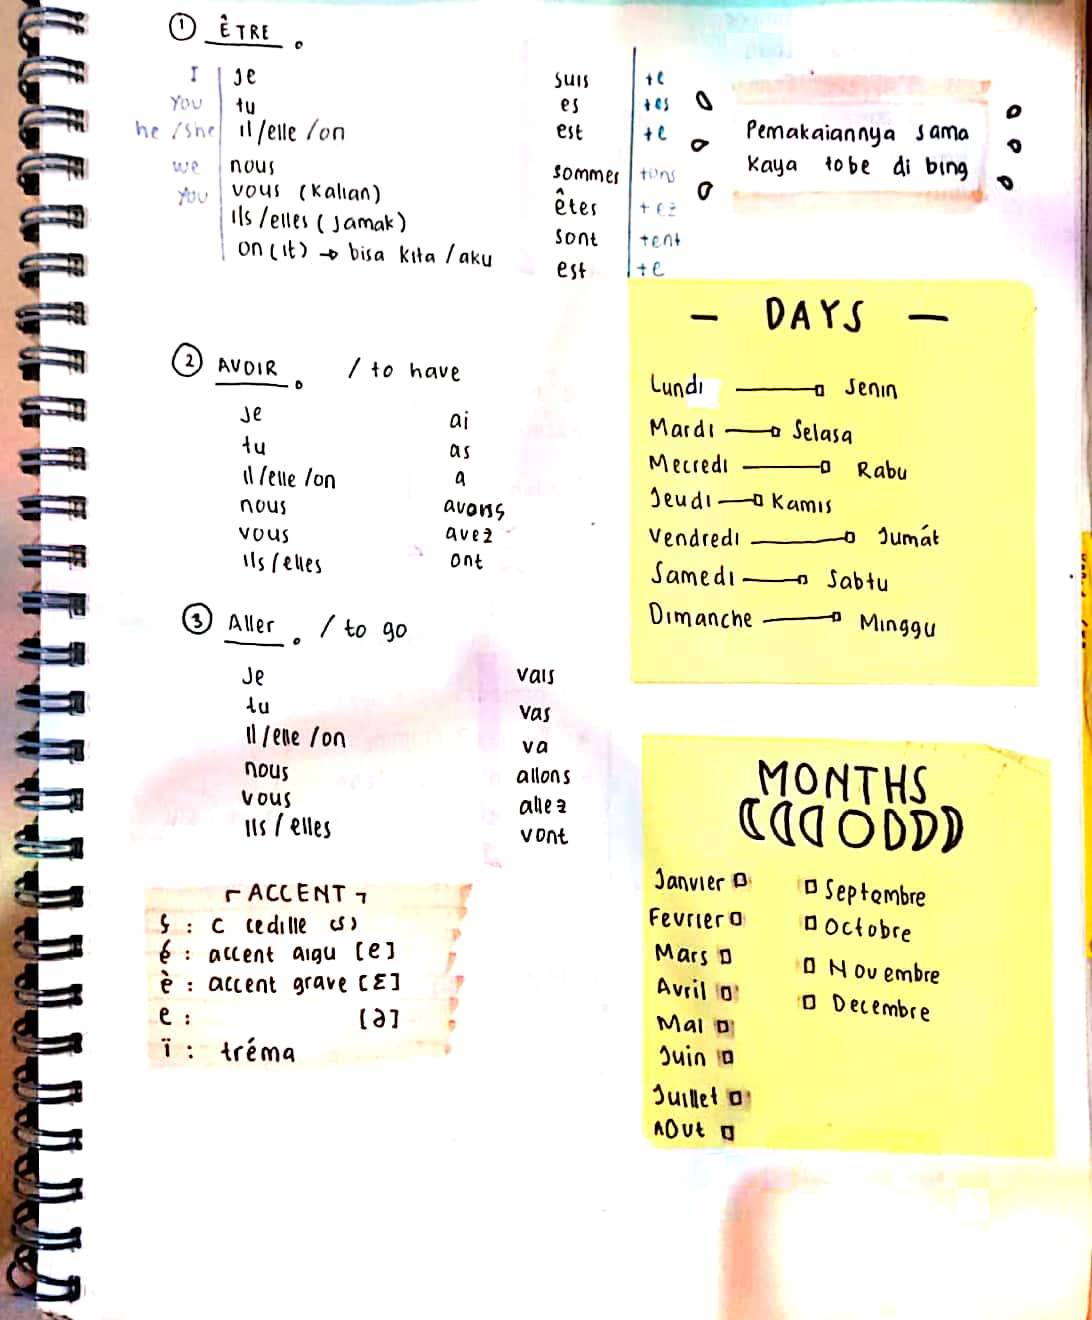 ① ÊTRE .
I Je suis +e
You tu es +es
he /she il /elle /on est +e
we nous sommer +ons
You vous (kalian) êtes +ez
ils /elles (Jamak) sont +ent
on (it) → bisa kita / aku est +e
Pemakaiannya sama
kaya tobe di bing
② AVOIR . / to have
Je ai
tu as
il /elle /on a
nous avons
vous avez
ils /elles ont
③ Aller . / to go
Je vais
tu vas
il /elle /on va
nous allons
vous allez
ils / elles vont
ACCENT
ç : C cedille (s)
é : accent aigu [e]
è : accent grave [ɛ]
e : [ə]
ï : tréma
- DAYS -
Lundi Senin
Mardi Selasa
Mecredi Rabu
Jeudi Kamis
Vendredi Jumát
Samedi Sabtu
Dimanche Minggu
MONTHS
Janvier
Fevrier
Mars
Avril
Mai
Juin
Juillet
AOut
Septembre
Octobre
Novembre
Decembre